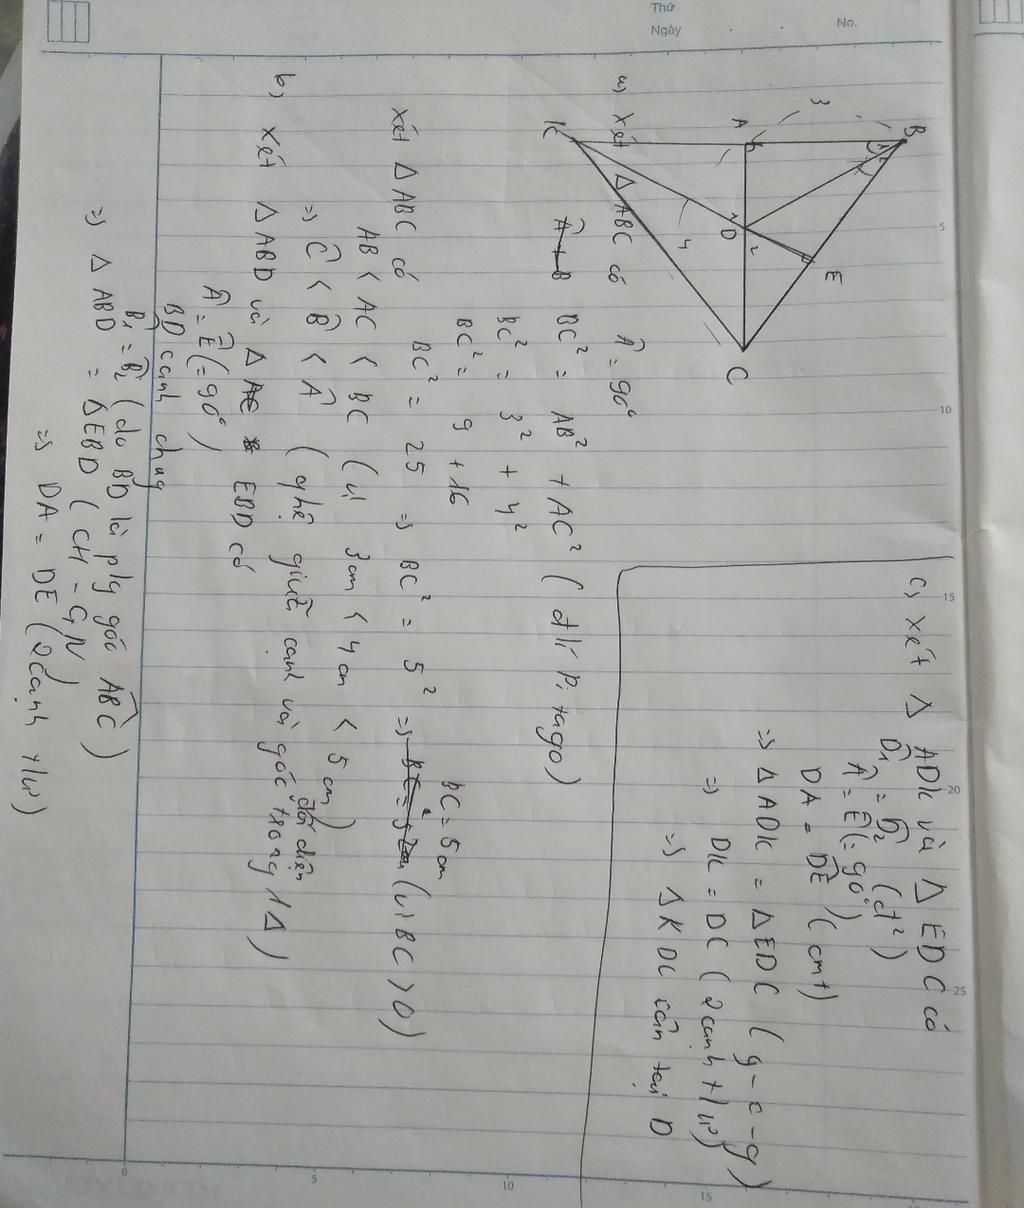 Thứ
Ngày
No.
B
A
K
D
E
C
3
4
1
2
a) Xét Δ ABC có Â = 90°
BC² = AB² + AC² (đlí Pitago)
BC² = 3² + 4²
BC² = 9 + 16
BC² = 25 => BC² = 5² => BC = 5cm (vì BC > 0)
Xét Δ ABC có
AB < AC < BC (vì 3cm < 4cm < 5cm)
=> Ĉ < B̂ < Â (qhệ giữa cạnh và góc đối diện trong 1Δ)
b) Xét Δ ABD và Δ EBD có
Â = Ê (= 90°)
BD cạnh chug
B̂₁ = B̂₂ (do BD là p/g góc ABC)
=> Δ ABD = Δ EBD (CH - GN)
=> DA = DE (2 cạnh t/ư)
c) Xét Δ ADK và Δ EDC có
D̂₁ = D̂₂ (đ²)
Â = Ê (= 90°)
DA = DE (cmt)
=> Δ ADK = Δ EDC (g - c - g)
=> DK = DC (2 cạnh t/ư)
=> Δ KDC cân tại D
5
10
15
20
25
0
5
10
15